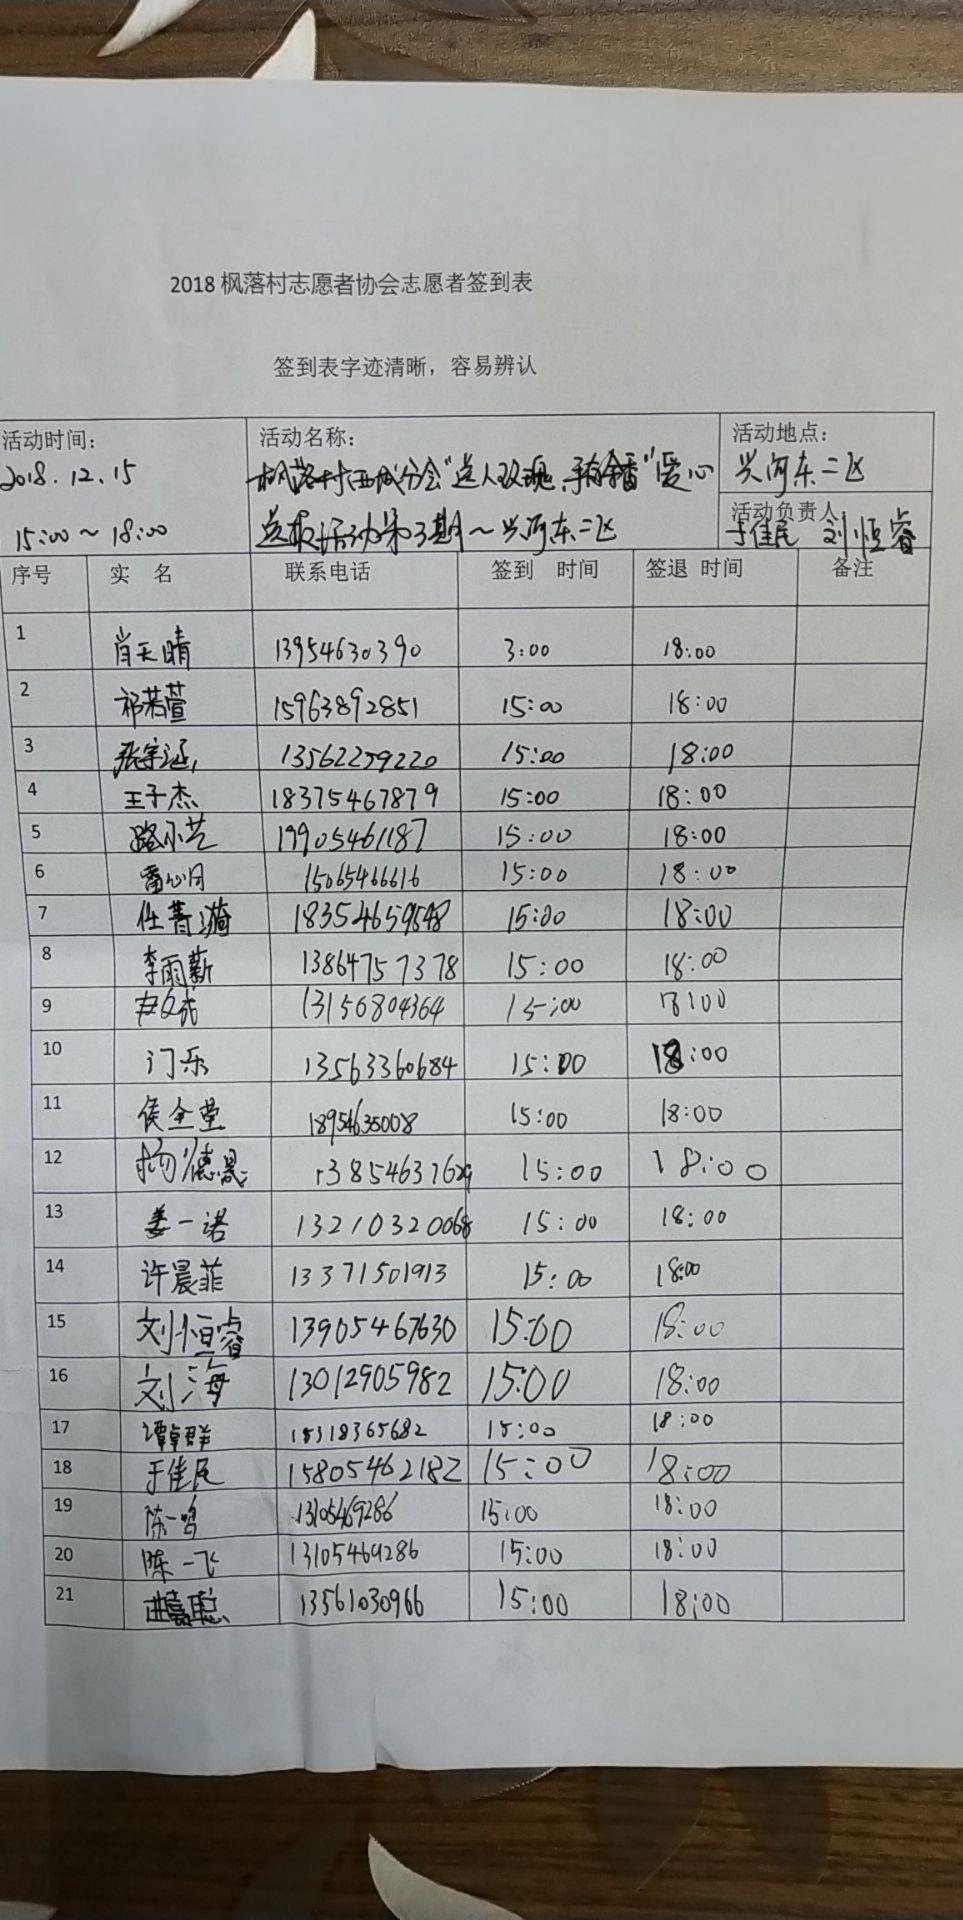 2018 枫落村志愿者协会志愿者签到表
签到表字迹清晰，容易辨认
活动时间： 活动名称： 活动地点：
2018.12.15 枫落村西城分会"送人玫瑰、手有余香"爱心 兴河东二区
活动负责人
15:00～18:00 送报活动第3期～兴河东二区 于佳民 刘恒睿
序号 实 名 联系电话 签到 时间 签退 时间 备注
1 肖天晴 13954630390 3:00 18:00
2 祁若萱 15963892851 15:00 18:00
3 张宇涵 13562259220 15:00 18:00
4 王子杰 18375467879 15:00 18:00
5 路小艺 19905461187 15:00 18:00
6 15065466616 15:00 18:00
7 任菁漪 15:00 18:00
8 李雨薪 13864757378 15:00 18:00
9 13156804364 15:00 18:00
10 门乐 13563360684 15:00 18:00
11 侯全莹 18954635008 15:00 18:00
12 杨德晟 15:00 18:00
13 姜一诺 13210320068 15:00 18:00
14 许晨菲 13371501913 15:00 18:00
15 刘恒睿 13905467630 15:00 18:00
16 刘海 13012905982 15:00 18:00
17 谭卓群 15318365682 15:00 18:00
18 于佳民 15805462182 15:00 18:00
19 陈一鸣 13105469286 15:00 18:00
20 陈一飞 13105469286 15:00 18:00
21 13561030966 15:00 18:00